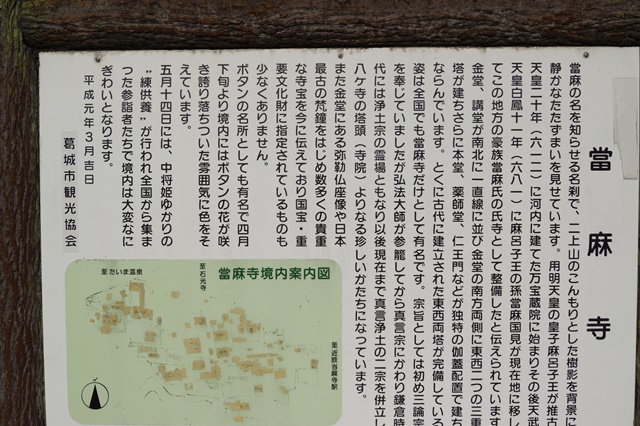 當麻寺
當麻の名を知らせる名刹で、二上山のこんもりとした樹影を背景に
静かなたたずまいを見せています。用明天皇の皇子麻呂子王が推古
天皇二十年(六一二)に河内に建てた万宝蔵院に始まりその後天武
天皇白鳳十一年(六八一)に麻呂子王の孫當麻国見が現在地に移し
てこの地方の豪族當麻氏の氏寺として整備したと伝えられています
金堂、講堂が南北に一直線に並び金堂の南方両側に東西二つの三重
塔が建ちさらに本堂、薬師堂、仁王門などが独特の伽藍配置で建ち
ならんでいます。とくに古代に建立された東西両塔が完備している
姿は全国でも當麻寺だけとして有名です。宗旨としては初め三論宗
を奉じていましたが弘法大師が参籠してから真言宗にかわり鎌倉時
代には浄土宗の霊場ともなり以後現在まで真言浄土の二宗を併立し
八ヶ寺の塔頭(寺院)よりなる珍しいかたちになっています。
また金堂にある弥勒仏座像や日本
最古の梵鐘をはじめ数多くの貴重
な寺宝を今に伝えており国宝・重
要文化財に指定されているものも
少なくありません。
ボタンの名所としても有名で四月
下旬より境内にはボタンの花が咲
き誇り落ちついた雰囲気に色をそ
えています。
五月十四日には、中将姫ゆかりの
"練供養"が行われ全国から集ま
った参詣者たちで境内は大変なに
ぎわいとなります。
平成元年3月吉日
葛城市観光協会
當麻寺境内案内図
至たいま温泉
至石光寺
至近鉄当麻寺駅